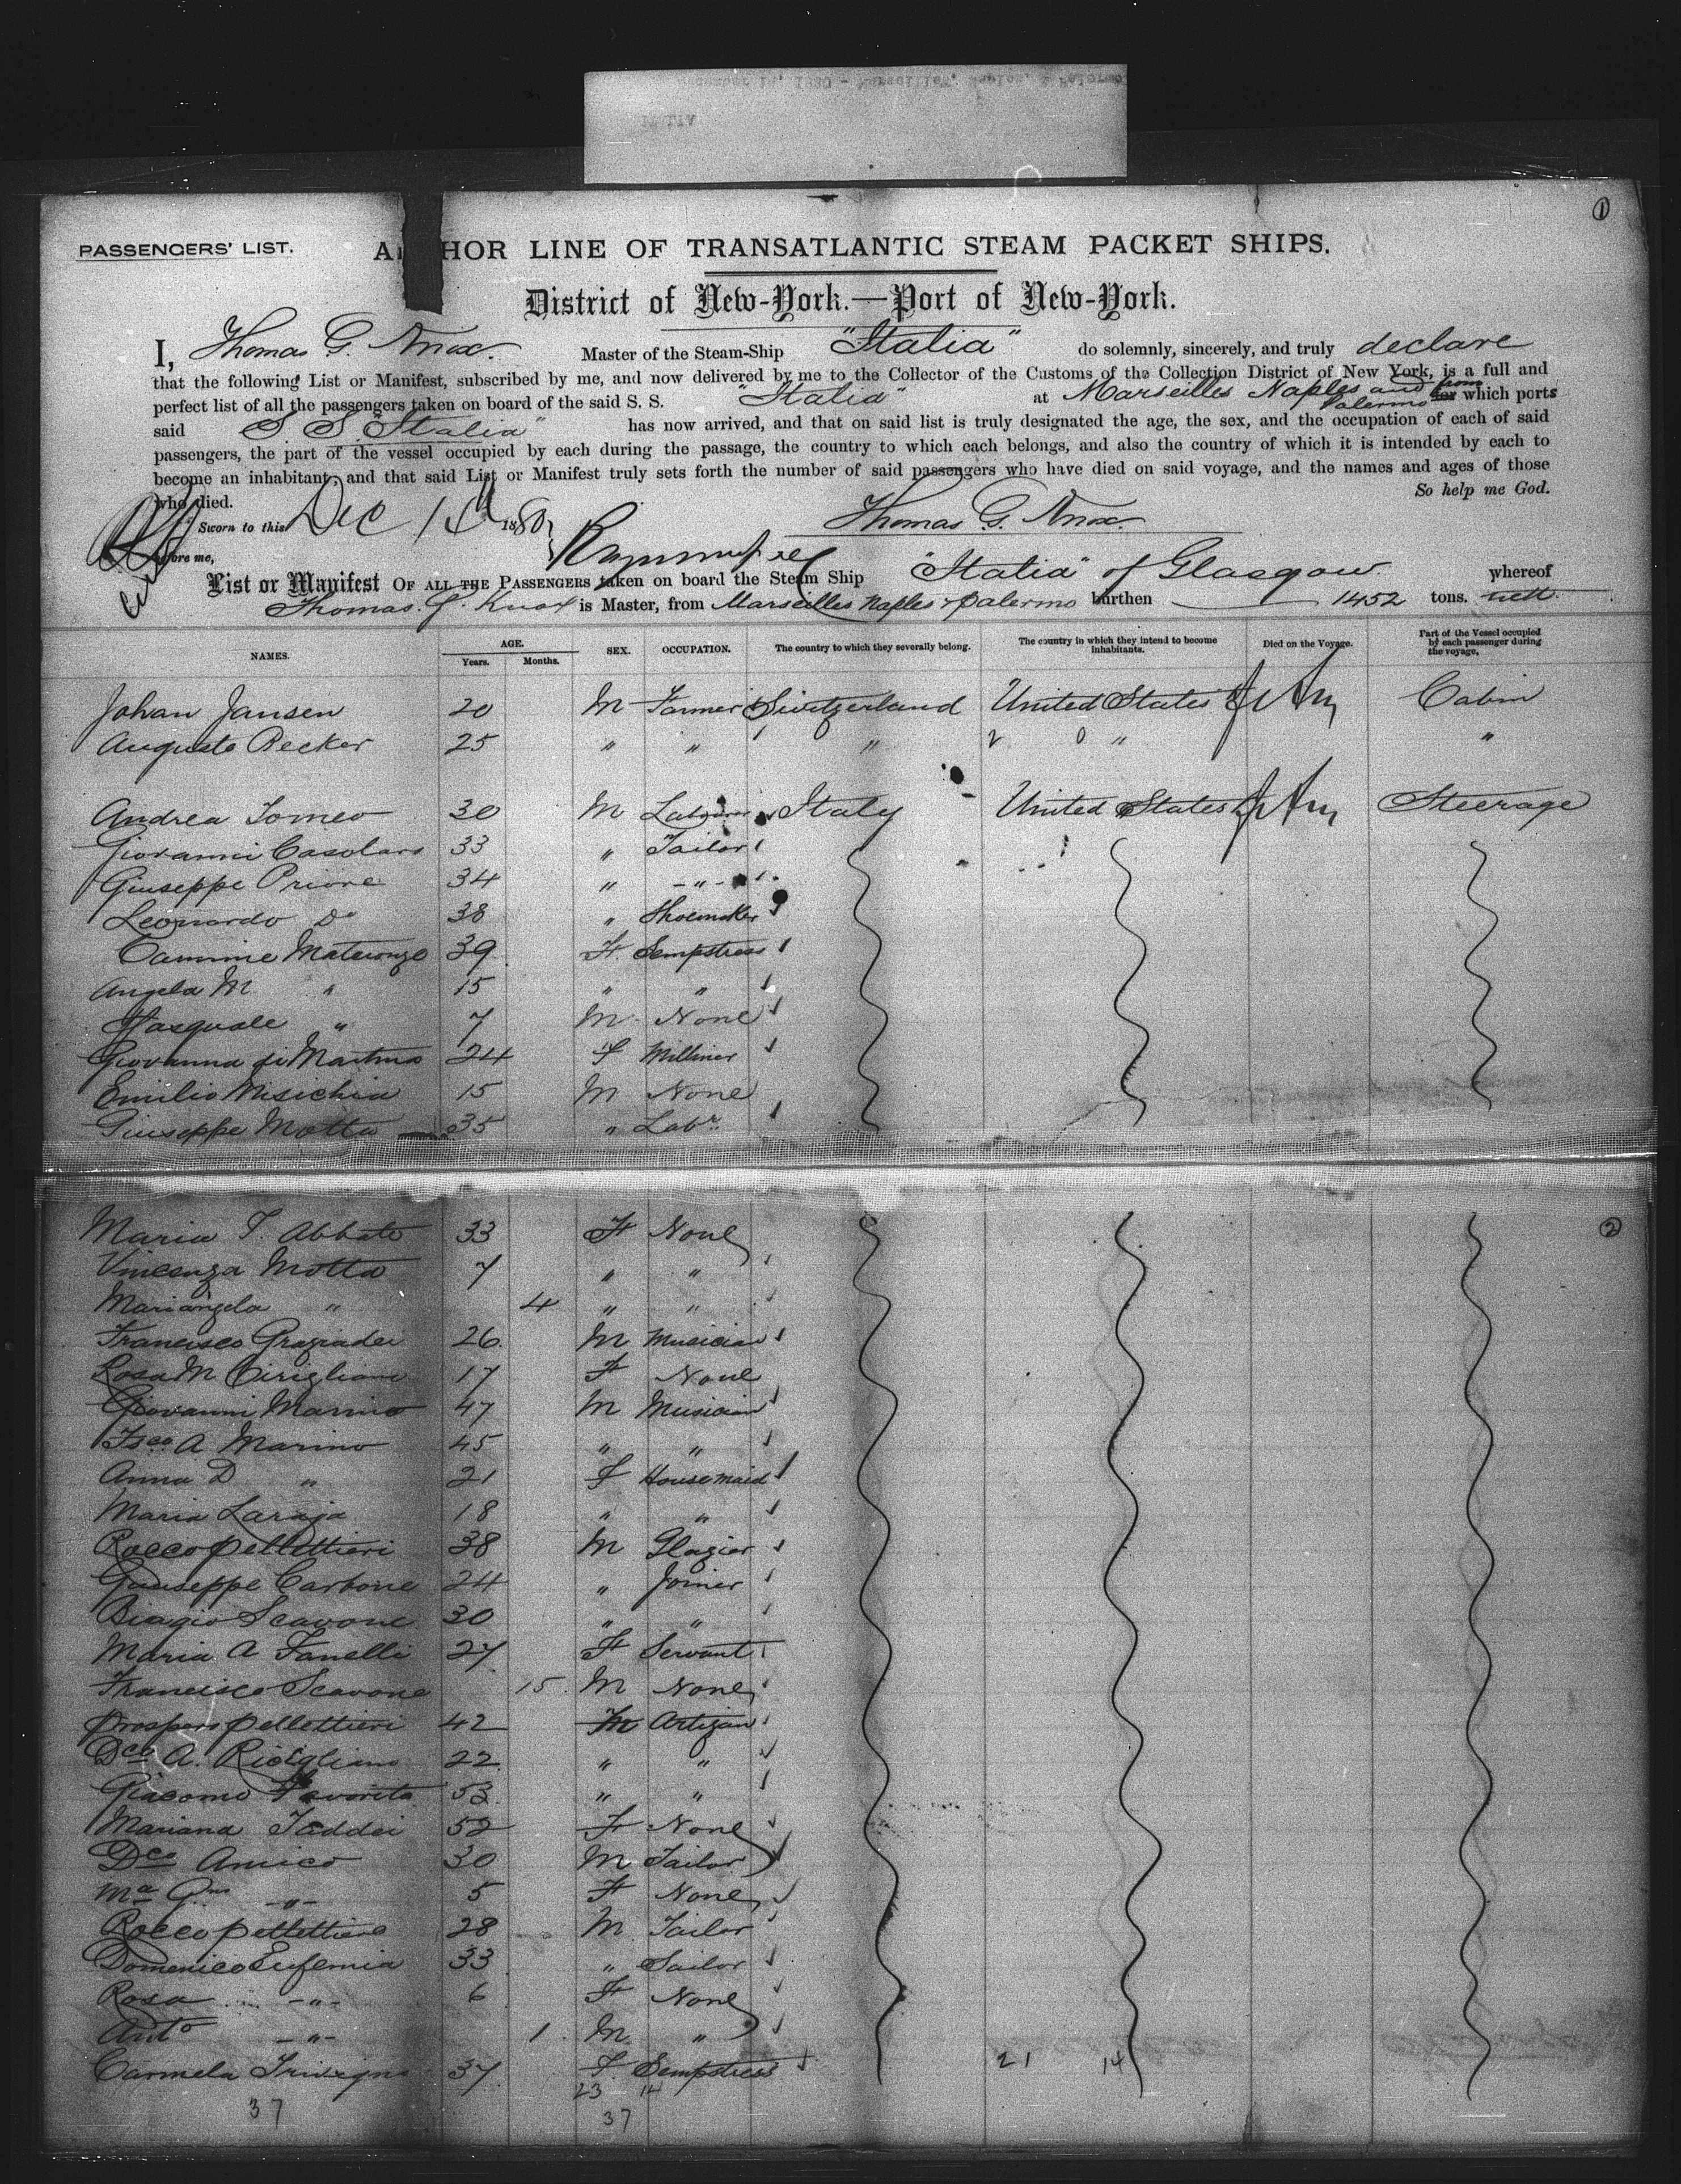 ①
PASSENGERS' LIST.
A HOR LINE OF TRANSATLANTIC STEAM PACKET SHIPS.
District of New-York.—Port of New-York.
I, Thomas G. Knox. Master of the Steam-Ship "Italia" do solemnly, sincerely, and truly declare
that the following List or Manifest, subscribed by me, and now delivered by me to the Collector of the Customs of the Collection District of New York, is a full and
perfect list of all the passengers taken on board of the said S. S. "Italia" at Marseilles Naples and Palermo from which ports
said S S "Italia" has now arrived, and that on said list is truly designated the age, the sex, and the occupation of each of said
passengers, the part of the vessel occupied by each during the passage, the country to which each belongs, and also the country of which it is intended by each to
become an inhabitant; and that said List or Manifest truly sets forth the number of said passengers who have died on said voyage, and the names and ages of those
who died. So help me God.
Sworn to this Dec 1880 Thomas G. Knox.
before me,
List or Manifest OF ALL THE PASSENGERS taken on board the Steam Ship "Italia" of Glasgow whereof
Thomas. G. Knox is Master, from Marseilles Naples & Palermo burthen 1452 tons. nett
NAMES. AGE. Years. Months. SEX. OCCUPATION. The country to which they severally belong. The country in which they intend to become inhabitants. Died on the Voyage. Part of the Vessel occupied by each passenger during the voyage.
Johan Jansen 20 M Farmer Switzerland United States Cabin
Auguste Becker 25 " " " " "
Andrea Tomeo 30 M Labourer Italy United States Steerage
Giovanni Casolaro 33 " Tailor
Giuseppe Priore 34 " -"-
Leonardo Do 38 " Shoemaker
Carmine 39 F. Sempstress
Angela M " 15 " "
Pasquale " 7 M None
Giovanna di Martino 24 F Milliner
Emilio 15 M None
Giuseppe Motta 35 " Labr.
②
Maria T. Abbate 33 F None
Vincenza Motta 7 " "
Mariangela " 4 " "
Francisco Graziadei 26 M Musician
Rosa M Cirigliano 17 F None
Giovanni Marino 47 M Musician
Fsco A Marino 45 " "
Anna D " 21 F Housemaid
Maria Laraja 18 " "
Rocco Pellettieri 38 M Glazier
Giuseppe Carbone 24 " Joiner
Biagio Scavone 30 " "
Maria A Fanelli 27 F Servant
Francisco Scavone 15 M None
Prospero Pellettieri 42 M Artizan
Dco A. 22 " "
Giacomo Favorita 53 " "
Mariana Taddei 52 F None
Dco Amico 30 M Tailor
Ma -"- 5 F None
Rocco Pellettiere 28 M Tailor
Domenico Eufemia 33 " Sailor
Rosa -"- 6 F None
Anto -"- 1 M "
Carmela 37 F. Sempstress 21 14
23 14
37 37